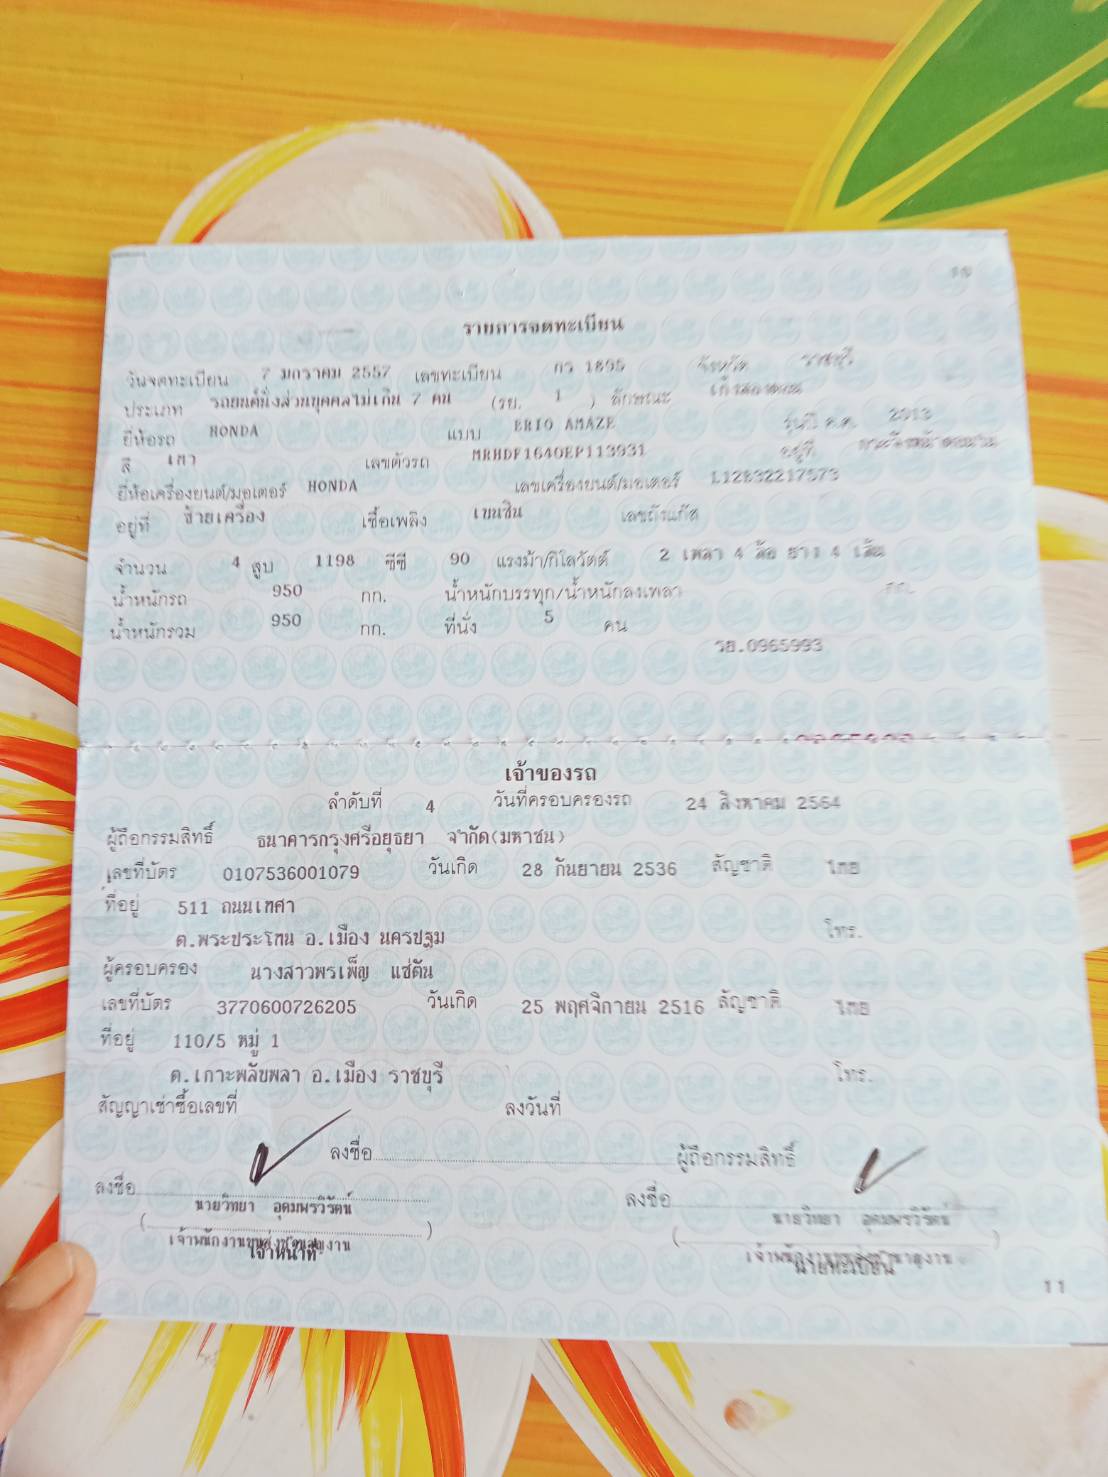 รายการจดทะเบียน
วันจดทะเบียน 7 มกราคม 2557 เลขทะเบียน กว 1895 จังหวัด ราชบุรี
ประเภท รถยนต์นั่งส่วนบุคคลไม่เกิน 7 คน (รย. 1 ) ลักษณะ เก๋งสองตอน
ยี่ห้อรถ HONDA แบบ BRIO AMAZE รุ่นปี ค.ศ. 2013
สี เทา เลขตัวรถ MRHDF1640EP113931 อยู่ที่
ยี่ห้อเครื่องยนต์/มอเตอร์ HONDA เลขเครื่องยนต์/มอเตอร์ L12B32217573
อยู่ที่ ซ้ายเครื่อง เชื้อเพลิง เบนซิน เลขถังแก๊ส
จำนวน 4 สูบ 1198 ซีซี 90 แรงม้า/กิโลวัตต์ 2 เพลา 4 ล้อ ยาง 4 เส้น
น้ำหนักรถ 950 กก. น้ำหนักบรรทุก/น้ำหนักลงเพลา กก.
น้ำหนักรวม 950 กก. ที่นั่ง 5 คน
รย.0965993
เจ้าของรถ
ลำดับที่ 4 วันที่ครอบครองรถ 24 สิงหาคม 2564
ผู้ถือกรรมสิทธิ์ ธนาคารกรุงศรีอยุธยา จำกัด(มหาชน)
เลขที่บัตร 0107536001079 วันเกิด 28 กันยายน 2536 สัญชาติ ไทย
ที่อยู่ 511 ถนนเทศา
ต.พระประโทน อ.เมือง นครปฐม โทร.
ผู้ครอบครอง นางสาวพรเพ็ญ แซ่ตัน
เลขที่บัตร 3770600726205 วันเกิด 25 พฤศจิกายน 2516 สัญชาติ ไทย
ที่อยู่ 110/5 หมู่ 1
ต.เกาะพลับพลา อ.เมือง ราชบุรี โทร.
สัญญาเช่าซื้อเลขที่ ลงวันที่
ลงชื่อ ผู้ถือกรรมสิทธิ์
ลงชื่อ ลงชื่อ
นายวิทยา อุดมพรวิรัตน์ นายวิทยา อุดมพรวิรัตน์
( ) ( )
เจ้าพนักงานขนส่งชำนาญงาน เจ้าพนักงานขนส่งชำนาญงาน
เจ้าหน้าที่ นายทะเบียน
11